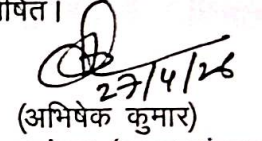 27/4/26
(अभिषेक कुमार)